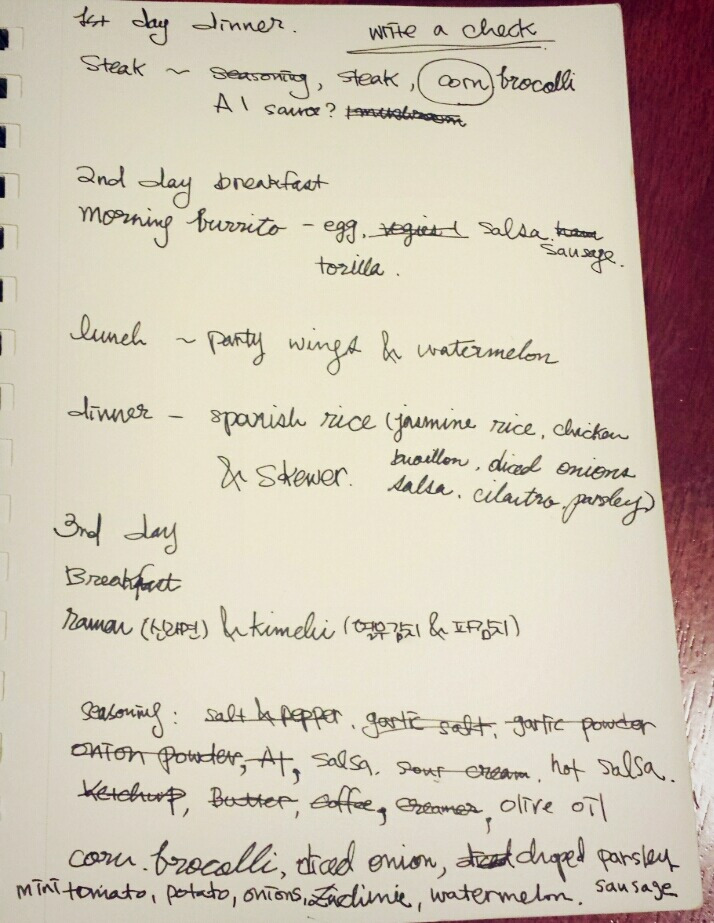 1st day dinner. write a check
Steak ~ seasoning, steak, corn brocolli
A1 sauce? mushroom
2nd day breakfast
morning burrito - egg, vegies salsa. ham
sausage.
torilla.
lunch ~ party wings & watermelon
dinner - spanish rice (jasmine rice, chicken
& skewer. buoillon, diced onions
salsa, cilantro, parsley)
3nd day
Breakfast
ramen (신라면) & kimchi (열무김치 & 파김치)
seasoning: salt & pepper, garlic salt, garlic powder
onion powder, A1, salsa. sour cream, hot salsa.
Ketchup, Butter, coffee, creamer, olive oil
corn. brocolli, diced onion, diced choped parsley
mini tomato, potato, onions, watermelon. sausage